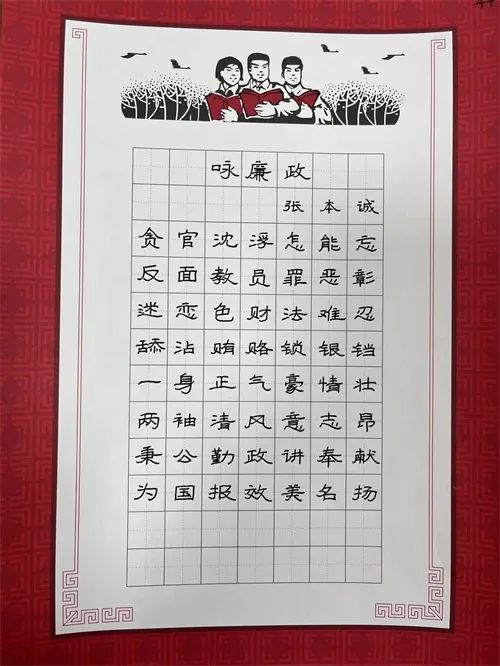 咏廉政
张本诚
贪官沈浮怎能忘
反面教员罪恶彰
迷恋色财法难忍
舔沾贿赂锁银铛
一身正气豪情壮
两袖清风意志昂
秉公勤政讲奉献
为国报效美名扬